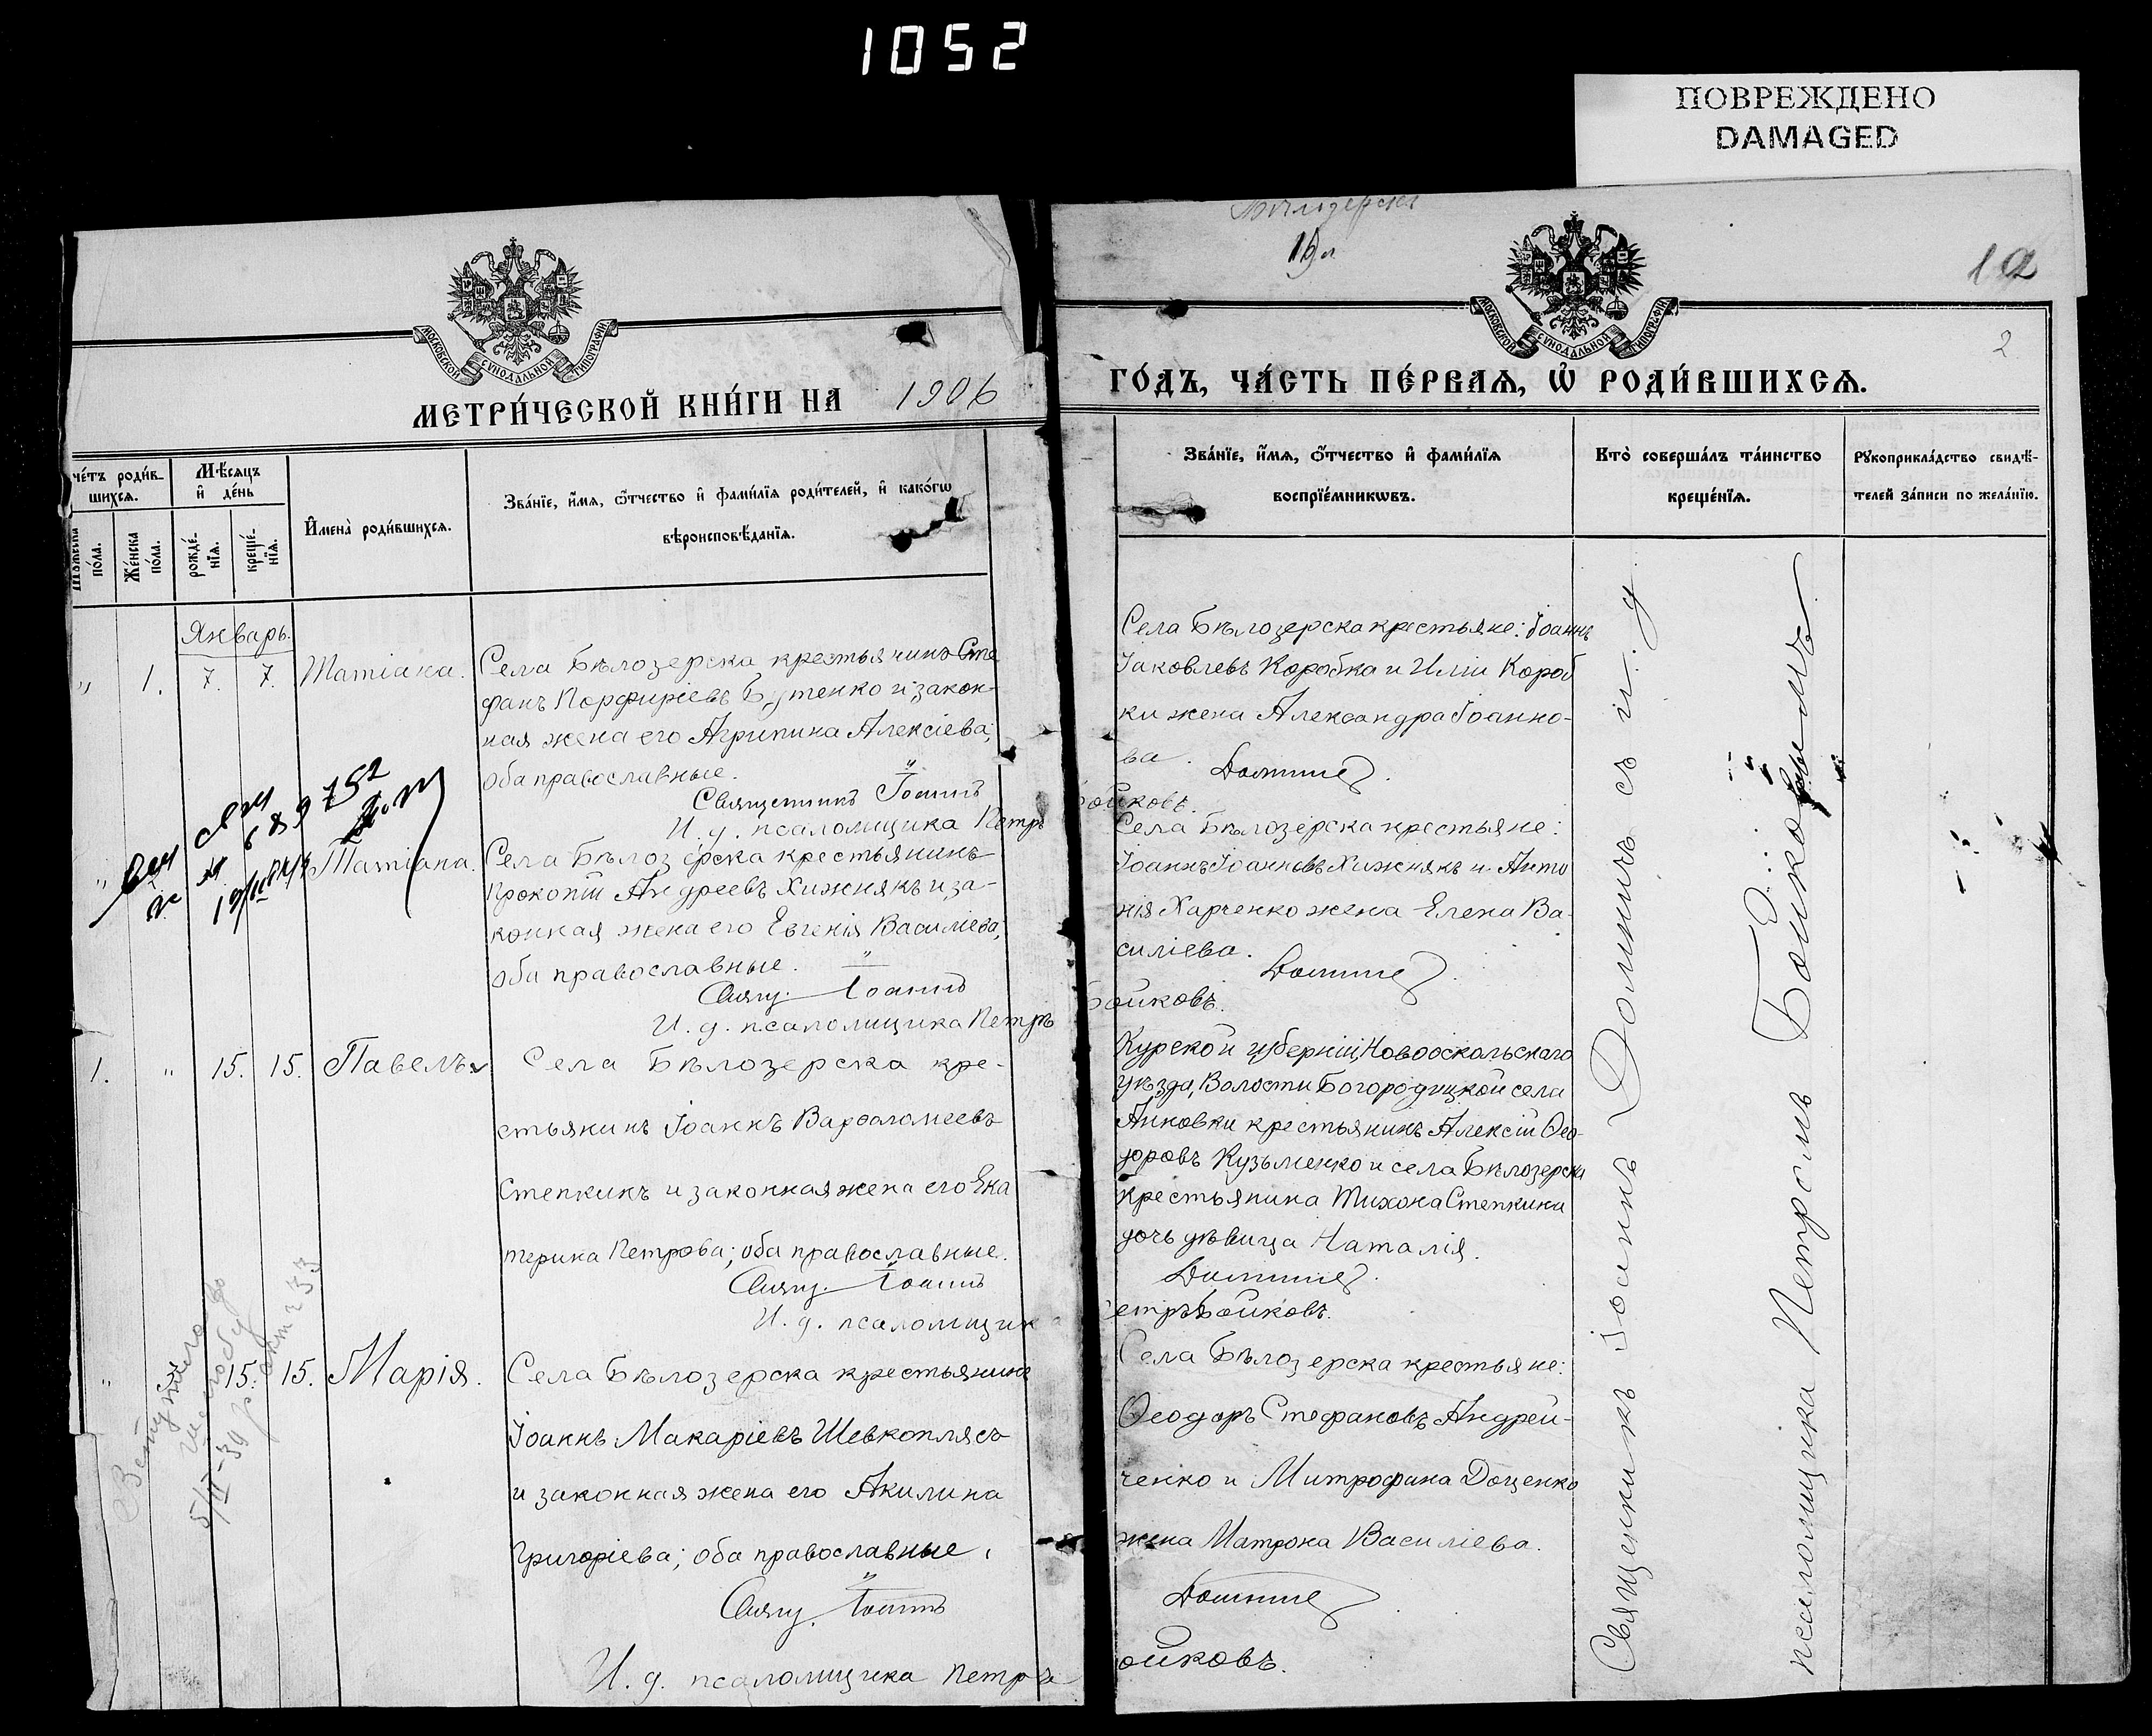 1052
ПОВРЕЖДЕНО
DAMAGED
12
2
МОСКОВСКОЙ СУНОДАЛЬНОЙ ТИПОГРАФІИ
МОСКОВСКОЙ СУНОДАЛЬНОЙ ТИПОГРАФІИ
МЕТРИ́ЧЕСКОЙ КНИ́ГИ НА 1906
ГО́ДЪ, ЧА́СТЬ ПЕ́РВАѦ, Ѡ҆ РОДИ́ВШИХСѦ.
че́тъ роди́в-
шихсѧ.
по́ла.
Же́нска
по́ла.
Мѣ́сѧцъ
и҆ де́нь
рожде́-
нїѧ.
креще́-
нїѧ.
И҆мена̀ роди́вшихсѧ.
Зва́нїе, и҆́мѧ, ѻ҆́тчество и҆ фами́лїѧ роди́телей, и҆ како́гѡ
вѣроисповѣ́данїѧ.
Зва́нїе, и҆́мѧ, ѻ҆́тчество и҆ фами́лїѧ
воспрїе́мникѡвъ.
Кто̀ соверша́лъ та́инство
креще́нїѧ.
Рꙋкоприкла́дство свидѣ́-
телей за́писи по жела́нїю.
Январь.
" 1. 7. 7. Татіана.
Села Бѣлозерска крестьянинъ Сте
фанъ Порфиріевъ Бутенко и закон-
ная жена его Агрипина Алексіева;
оба православные.
Священникъ Іоаннъ
И. д. псаломщика Петръ
Села Бѣлозерска крестьяне: Іоаннъ
Іаковлевъ Коробка и Иліи Короб
ки жена Александра Іоанно-
ва.
Доминич.
Бойковъ.
" Татіана.
Села Бѣлозерска крестьянинъ
Прокопій Андреевъ Хижнякъ и за-
конная жена его Евгенія Василіева;
оба православные.
Свящ. Іоаннъ
И. д. псаломщика Петръ
Села Бѣлозерска крестьяне:
Іоаннъ Іоанновъ Хижнякъ и Анто
нія Харченко жена Елена Ва-
силіева.
Доминич.
Бойковъ.
1. " 15. 15. Павелъ
Села Бѣлозерска кре-
стьянинъ Іоаннъ Варѳоломеевъ
Степкинъ и законная жена его Ека
терина Петрова; оба православные.
Свящ. Іоаннъ
И. д. псаломщик
Курской губерніи, Новооскольскаго
уѣзда, Волости Богородицкой села
крестьянинъ Алексій Ѳео-
доровъ Кузьменко и села Бѣлозерска
крестьянина Тихона Степкина
дочь дѣвица Наталія.
Доминич.
етръ Бойковъ.
" 15. 15. Марія.
Села Бѣлозерска крестьянинъ
Іоаннъ Макаріевъ Шевкоплясъ
и законная жена его Акилина
Григоріева; оба православные.
Свящ. Іоаннъ
И. д. псаломщика Петръ
Села Бѣлозерска крестьяне:
Ѳеодоръ Стефановъ Андрей-
ченко и Митрофана Доценко
жена Матрона Василіева.
Доминич
ойковъ.
Священникъ Іоаннъ Доминичъ съ и. д.
псаломщика Петромъ Бойковымъ